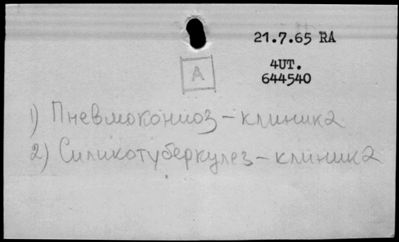 21.7.65 RA
4UT.
644540
A
1) Пневмокониоз – клиника
2) Силикотуберкулез – клиника